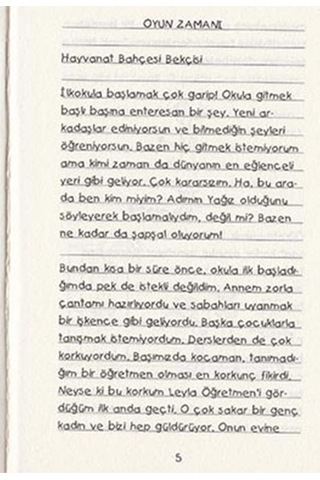 OYUN ZAMANI
Hayvanat Bahçesi Bekçisi
İlkokula başlamak çok garip! Okula gitmek
başlı başına enteresan bir şey. Yeni ar-
kadaşlar ediniyorsun ve bilmediğin şeyleri
öğreniyorsun. Bazen hiç gitmek istemiyorum
ama kimi zaman da dünyanın en eğlenceli
yeri gibi geliyor. Çok kararsızım. Ha, bu ara-
da ben kim miyim? Adımın Yağız olduğunu
söyleyerek başlamalıydım, değil mi? Bazen
ne kadar da şapşal oluyorum!
Bundan kısa bir süre önce, okula ilk başladı-
ğımda pek de istekli değildim. Annem zorla
çantamı hazırlıyordu ve sabahları uyanmak
bir işkence gibi geliyordu. Başka çocuklarla
tanışmak istemiyordum. Derslerden de çok
korkuyordum. Başımızda kocaman, tanımadı-
ğım bir öğretmen olması en korkunç fikirdi.
Neyse ki bu korkum Leyla Öğretmen'i gör-
düğüm ilk anda geçti. O çok sakar bir genç
kadın ve bizi hep güldürüyor. Onun evine
5